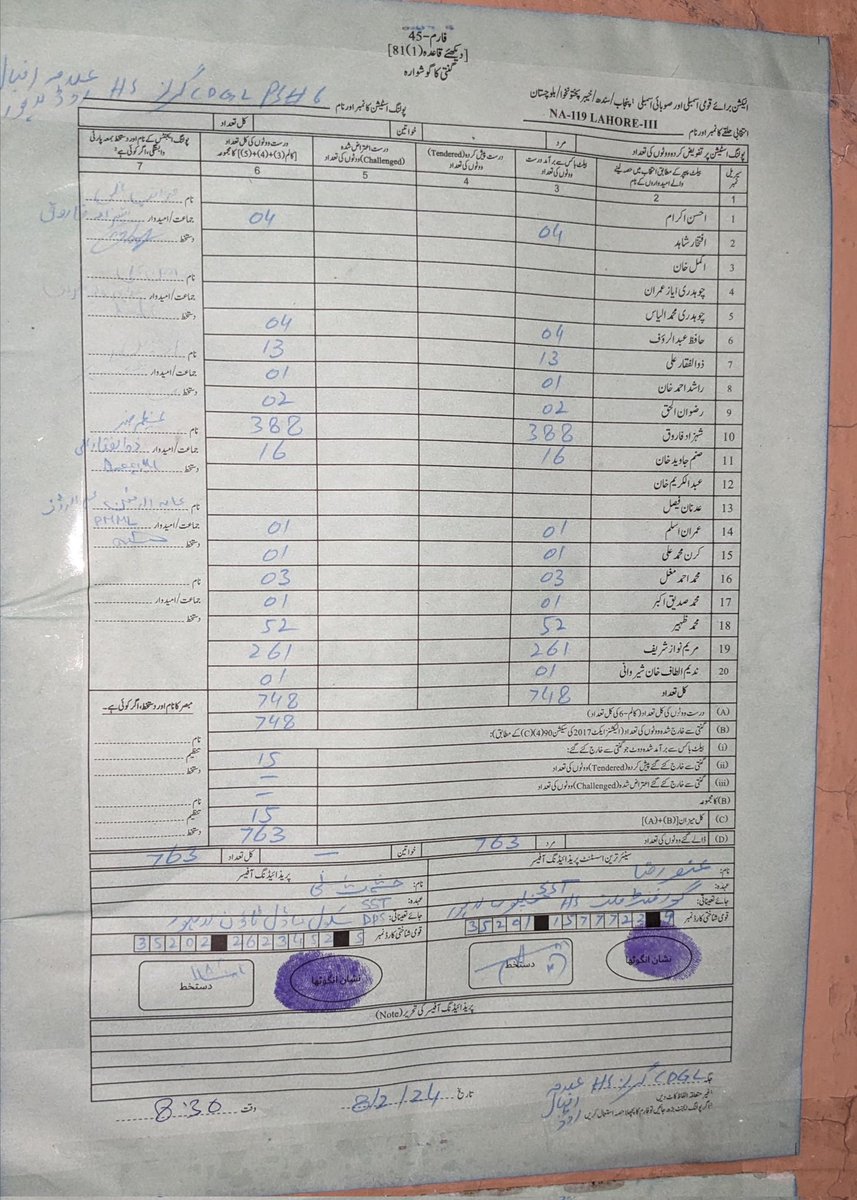 فارم-45
[دیکھئے قاعدہ 81(1)]
گنتی کا گوشوارہ
CDGL گرلز HS
الیکشن برائے قومی اسمبلی اور صوبائی اسمبلی، پنجاب/سندھ/خیبر پختونخوا/بلوچستان
انتخابی حلقے کا نمبر اور نام NA-119 LAHORE-III پولنگ اسٹیشن کا نمبر اور نام
مرد خواتین کل تعداد
پولنگ اسٹیشن پر تفویض کردہ ووٹوں کی تعداد
سیریل نمبر
بیلٹ پیپر کے مطابق انتخاب میں حصہ لینے والے امیدواروں کے نام
بیلٹ باکس سے برآمد درست ووٹوں کی تعداد
درست پیش کردہ (Tendered) ووٹوں کی تعداد
درست اعتراض شدہ (Challenged) ووٹوں کی تعداد
درست ووٹوں کی کل تعداد [کالم (3)+(4)+(5) کا مجموعہ]
پولنگ ایجنٹس کے نام اور دستخط بمعہ پارٹی وابستگی، اگر کوئی ہے:
1 2 3 4 5 6 7
1 احسن اکرم
2 افتخار شاہد 04 04
3 اکمل خان
4 چوہدری ایاز عمران
5 چوہدری محمد الیاس
6 حافظ عبدالرؤف 04 04
7 ذوالفقار علی 13 13
8 راشد احمد خان 01 01
9 رضوان الحق 02 02
10 شہزاد فاروق 388 388
11 صنم جاوید خان 16 16
12 عبدالکریم خان
13 عدنان فیصل
14 عمران اسلم 01 01
15 کرن محمد علی 01 01
16 محمد احمد مغل 03 03
17 محمد صدیق اکبر 01 01
18 محمد ظہیر 52 52
19 مریم نواز شریف 261 261
20 ندیم الطاف خان شیروانی 01 01
کل تعداد 748 748
نام
جماعت/امیدوار
دستخط
نام
جماعت/امیدوار
دستخط
نام
جماعت/امیدوار
دستخط
نام
جماعت/امیدوار
دستخط
نام
جماعت/امیدوار PMML
دستخط
نام
جماعت/امیدوار
دستخط
مبصر کا نام اور دستخط، اگر کوئی ہے۔
نام
تنظیم
دستخط
نام
تنظیم
دستخط
(A) درست ووٹوں کی کل تعداد (کالم-6 کی کل تعداد) 748
(B) گنتی سے خارج شدہ ووٹوں کی تعداد (الیکشنز ایکٹ 2017 کی سیکشن 90(4)(C) کے مطابق):
(i) بیلٹ باکس سے برآمد شدہ ووٹ جو گنتی سے خارج کئے گئے: 15
(ii) گنتی سے خارج کئے گئے پیش کردہ (Tendered) ووٹوں کی تعداد –
(iii) گنتی سے خارج کئے گئے اعتراض شدہ (Challenged) ووٹوں کی تعداد –
(B) کا مجموعہ 15
(C) کل میزان [(A)+(B)] 763
(D) ڈالے گئے ووٹوں کی تعداد مرد 763 خواتین – کل تعداد 763
سینئر ترین اسسٹنٹ پریذائیڈنگ آفیسر
نام:
عہدہ: SST
جائے تعیناتی:
قومی شناختی کارڈ نمبر 35201 1577723 9
دستخط نشان انگوٹھا
پریذائیڈنگ آفیسر
نام:
عہدہ: SST
جائے تعیناتی: DPS سکول ماڈل ٹاؤن لاہور
قومی شناختی کارڈ نمبر 35202 2623452 5
دستخط نشان انگوٹھا
پریذائیڈنگ آفیسر کی تحریر (Note)
جگہ CDGL گرلز HS علامہ اقبال روڈ تاریخ 8/2/24 وقت 8:30
غیر متعلقہ الفاظ کاٹ دیں
اگر پولنگ ایجنٹ بڑھ جائیں تو فارم کا پچھلا حصہ استعمال کریں